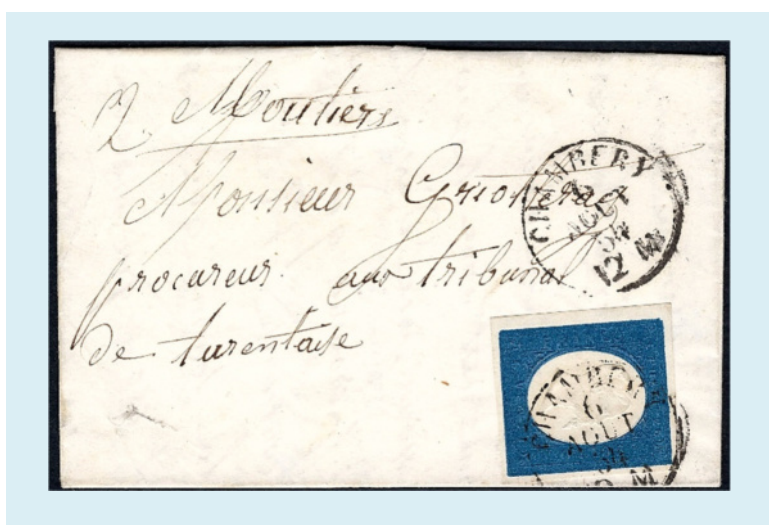 Moutiers
Monsieur
procureur au tribunal
de tarentaise
CHAMBERY
AOUT
54
12 M
CHAMBERY
6
AOUT
M